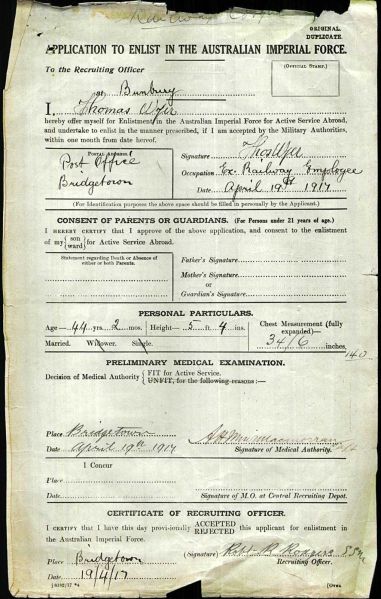 Railway Corps
ORIGINAL.
DUPLICATE.
APPLICATION TO ENLIST IN THE AUSTRALIAN IMPERIAL FORCE.
To the Recruiting Officer
at Bunbury
(OFFICIAL STAMP.)
I, Thomas Uzer
hereby offer myself for Enlistment in the Australian Imperial Force for Active Service Abroad,
and undertake to enlist in the manner prescribed, if I am accepted by the Military Authorities,
within one month from date hereof.
POSTAL ADDRESS
Post Office
Bridgetown
Signature Thos Uzer
Occupation Ex. Railway Employee
Date April 19th 1917
(For Identification purposes the above space should be filled in personally by the Applicant).
CONSENT OF PARENTS OR GUARDIANS. (For Persons under 21 years of age.)
I HEREBY CERTIFY that I approve of the above application, and consent to the enlistment
of my {son ward} for Active Service Abroad.
Statement regarding Death or Absence of
either or both Parents.
Father's Signature
Mother's Signature
or
Guardian's Signature
PERSONAL PARTICULARS.
Age—44 yrs. 2 mos. Height—5 ft. 4 ins.
Chest Measurement (fully
expanded)—
34/6 inches
140
Married. Widower. Single.
PRELIMINARY MEDICAL EXAMINATION.
Decision of Medical Authority {FIT for Active Service.
UNFIT, for the following reasons:—
Place Bridgetown
Date April 19th 1917
Signature of Medical Authority.
I Concur
Place
Date
Signature of M.O. at Central Recruiting Depot.
CERTIFICATE OF RECRUITING OFFICER.
I CERTIFY that I have this day provisionally ACCEPTED REJECTED this applicant for enlistment in the
Australian Imperial Force.
Place Bridgetown
Date 19/4/17
(Signature) Robt R Rodgers
Recruiting Officer.
[OVER.